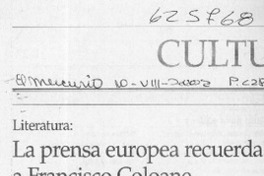 625768
CULTU
El Mercurio 10-VIII-2002 P.C28
Literatura:
La prensa europea recuerda
a Francisco Coloane